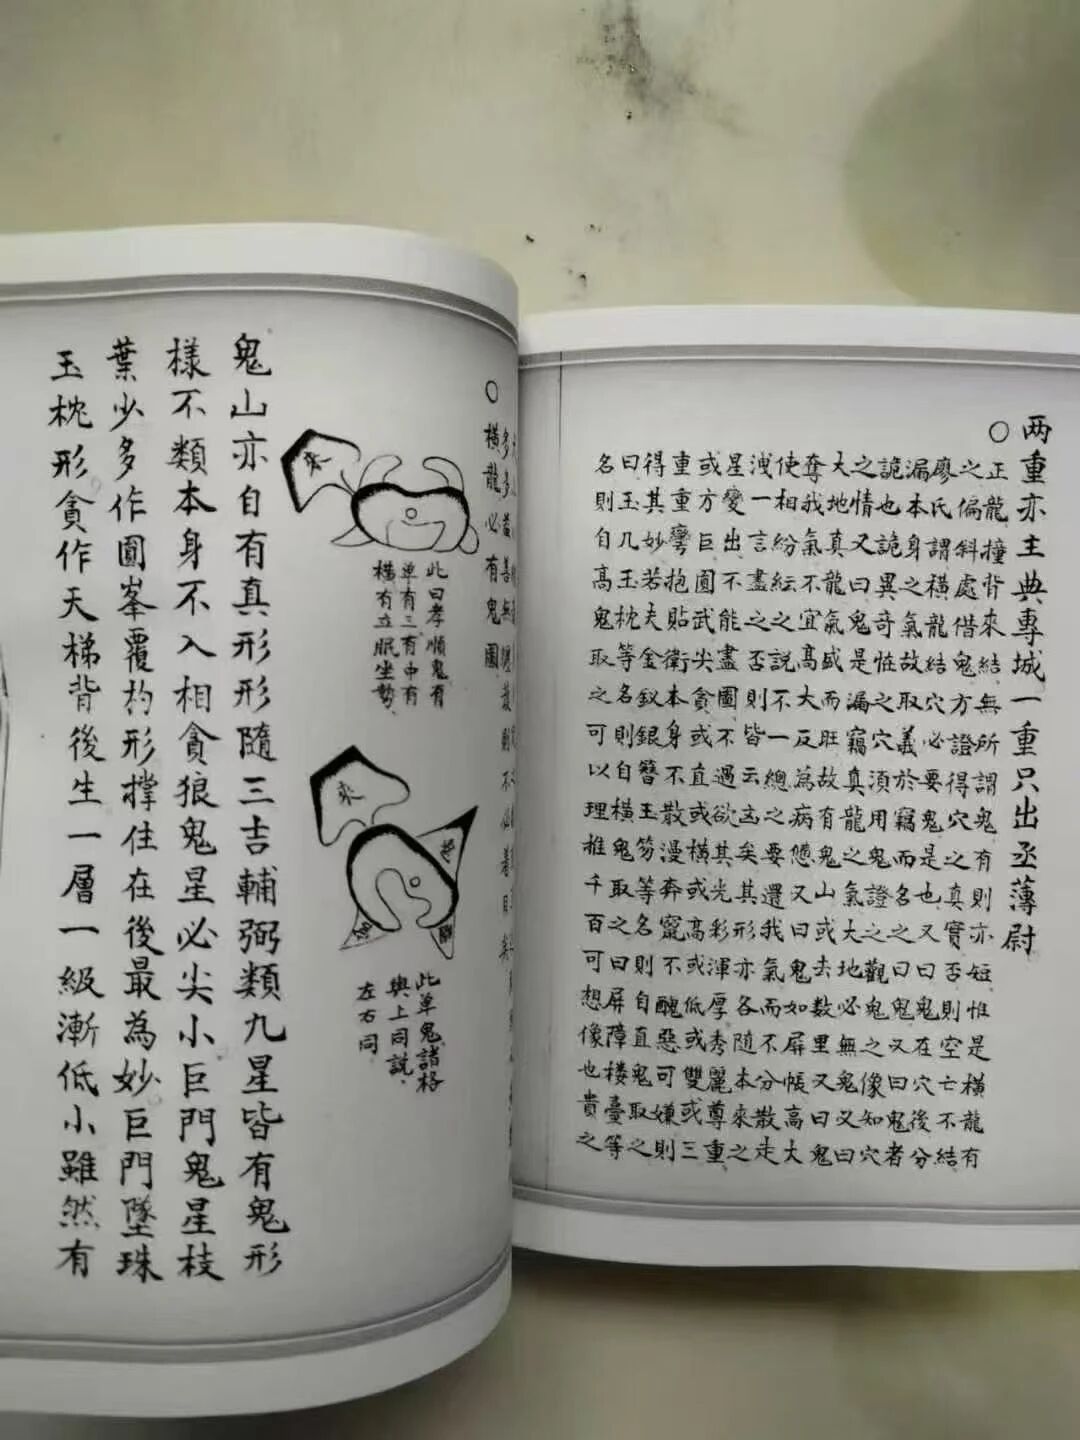 两重亦主典專城一重只出丞薄尉
○
正龍撞背來結無所謂鬼有則亦短惟是橫龍有
之偏斜處借鬼方證得穴之真實否則空亡不結
廖氏謂橫龍結穴必要鬼是也又曰鬼在穴後分
漏本身之氣故取義於竊而名之曰鬼又曰鬼者
詭也詭異奇怪之穴須用鬼證之觀鬼之像知穴
之情又曰鬼是漏竊真龍之氣大地必無鬼又曰
大地真龍氣盛而旺故有鬼山或去數里又曰鬼
奪我氣不宜高大反為病憊又曰鬼如屏帳高大
使相紛紜之說不一總之要還我氣而不分散走
洩一言盡之否則皆云凶矣其形亦各隨本來之
星變出不能盡圖不過欲其光彩渾厚秀麗尊重
或方巨圓武尖貪或直或橫或高或低或雙或三
重重彎抱貼衛本身不散漫奔竄不醜惡可嫌則
得其妙若夫金釵銀簪玉笏等名則自直鬼取之
曰玉几玉枕等名則自橫鬼取之曰屏障楼臺等
名則自高鬼取之可以理推千百可想像也貴之
○
橫龍必有鬼圖
此曰孝順鬼有
单有三有中有
橫有立眠坐勢
來
此单鬼諸格
與上同說
左右同
來
鬼山亦自有真形形隨三吉輔弼類九星皆有鬼形
樣不類本身不入相貪狼鬼星必尖小巨門鬼星枝
葉少多作圓峯覆杓形撑住在後最為妙巨門墜珠
玉枕形貪作天梯背後生一層一級漸低小雖然有